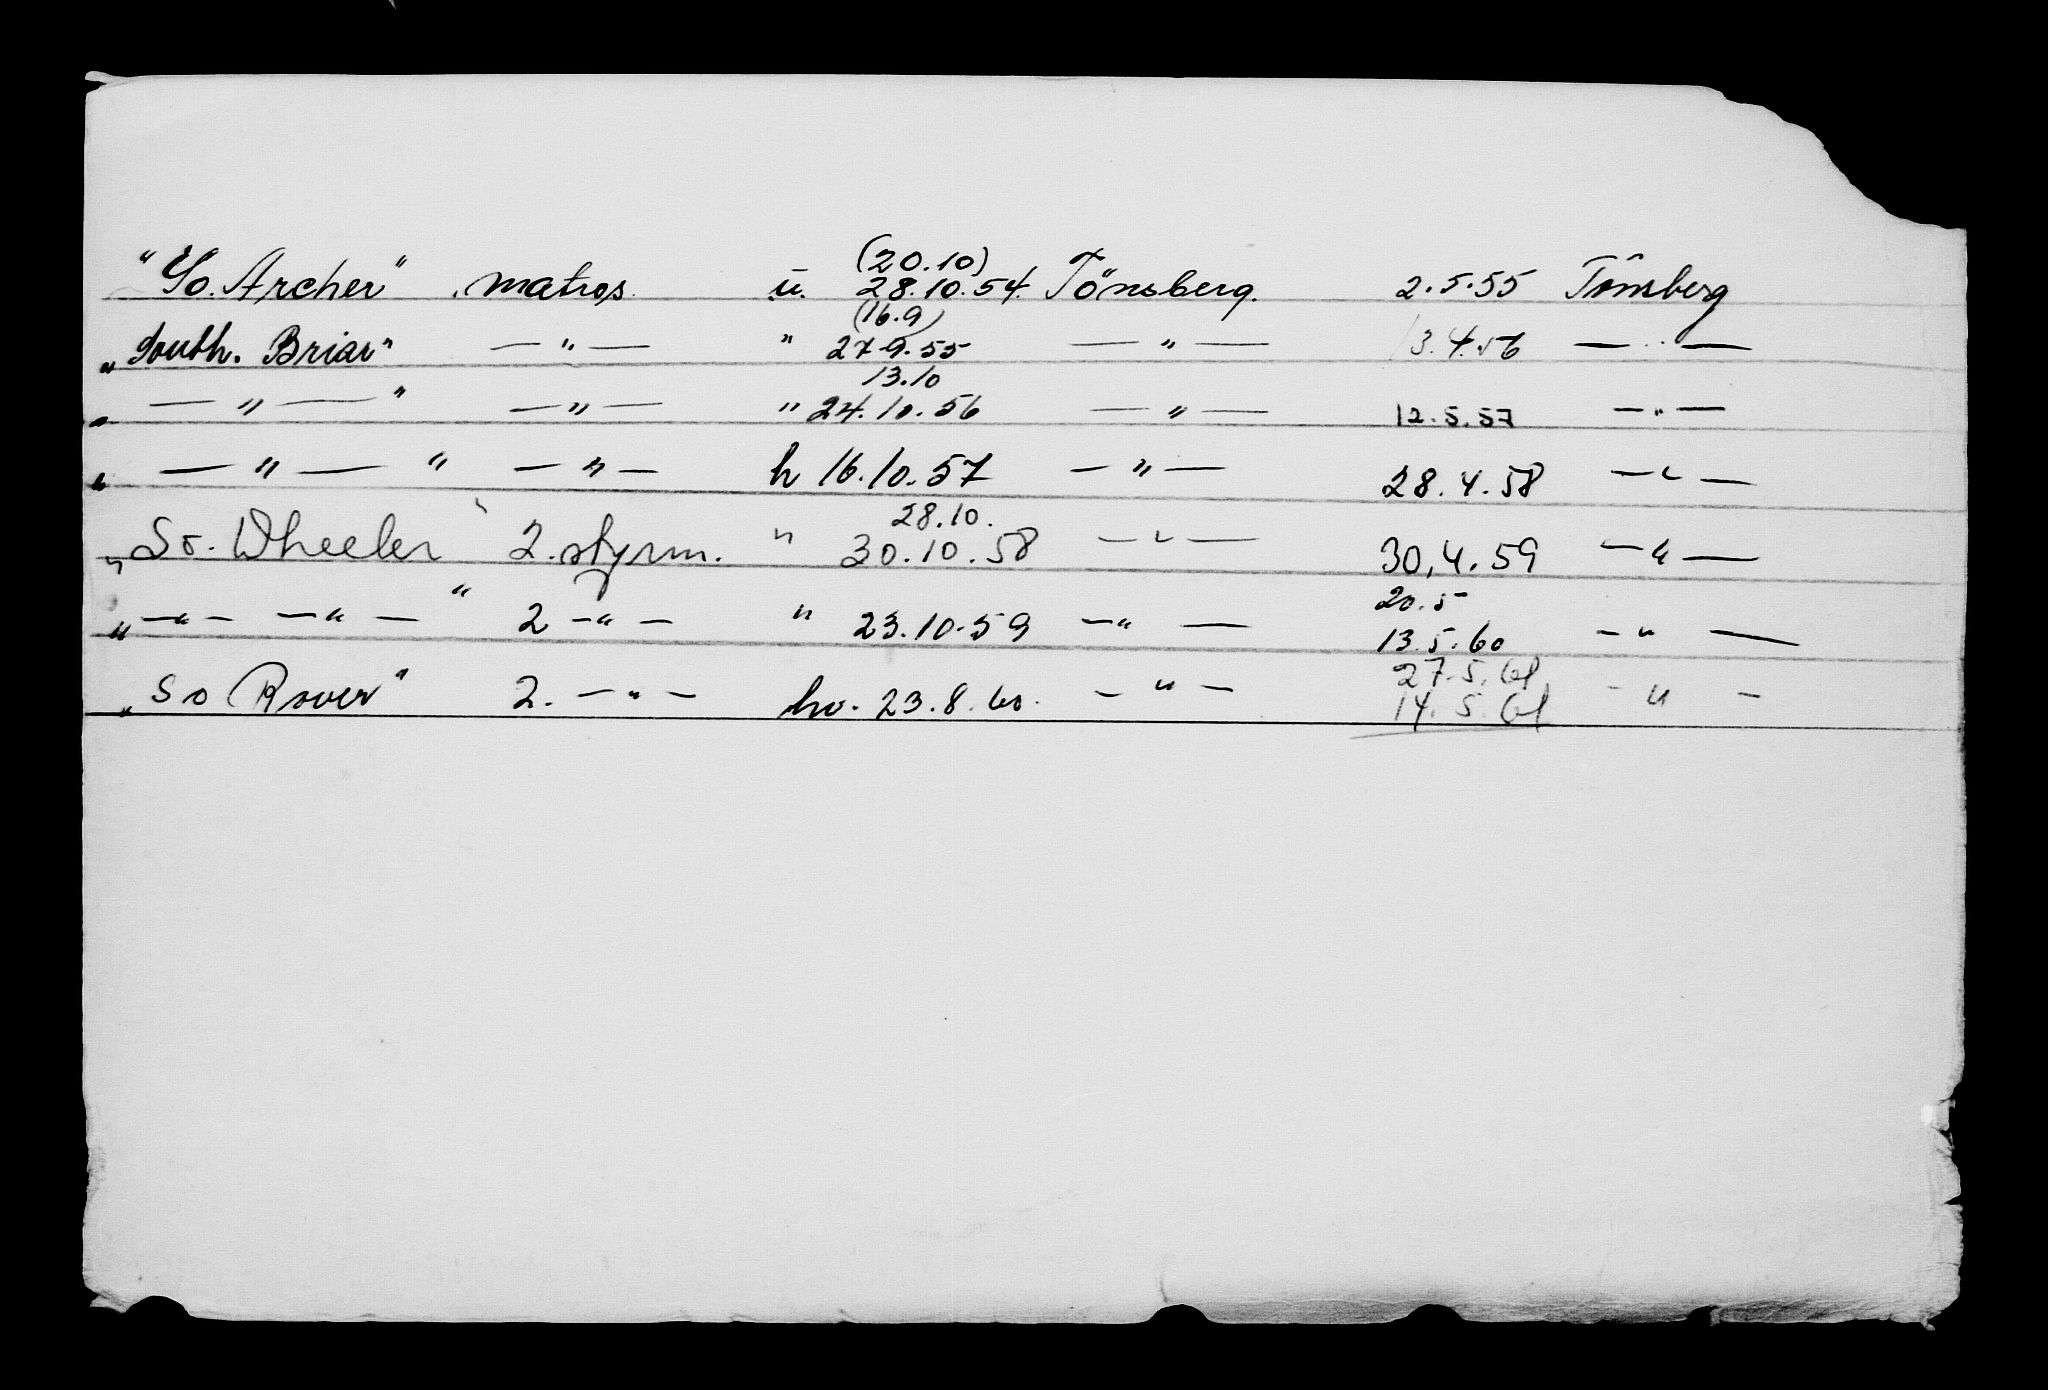 (20.10)
"So. Archer" matros ü. 28.10.54. Tönsberg. 2.5.55 Tönsberg
(16.9)
"South. Briar" — " — " 27.9.55 — " — 13.4.56 — " —
13.10
" — " — " — " — " 24.10.56 — " — 12.5.57 — " —
" — " — " — " — h 16.10.57 — " — 28.4.58 — " —
28.10.
"So. Wheeler" 2. styrm. " 30.10.58 — " — 30.4.59 — " —
20.5
" — " — — " — " 2 — " — " 23.10.59 — " — 13.5.60 — " —
27.5.61
"So Rover" 2. — " — hv. 23.8.60. — " — 14.5.61 — " —